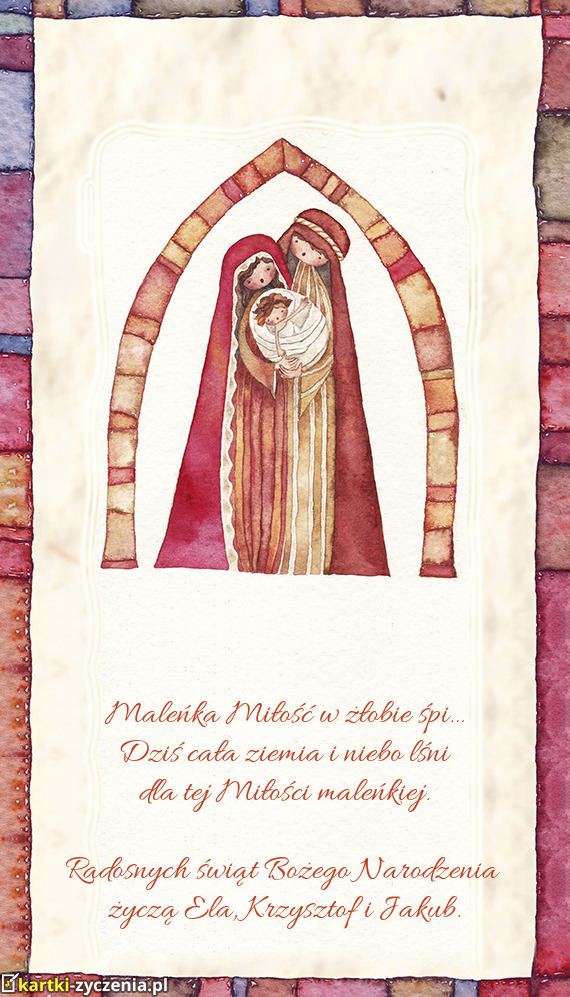 Maleńka Miłość w żłobie śpi...
Dziś cała ziemia i niebo lśni
dla tej Miłości maleńkiej.
Radosnych świąt Bożego Narodzenia
życzą Ela, Krzysztof i Jakub.
kartki-zyczenia.pl